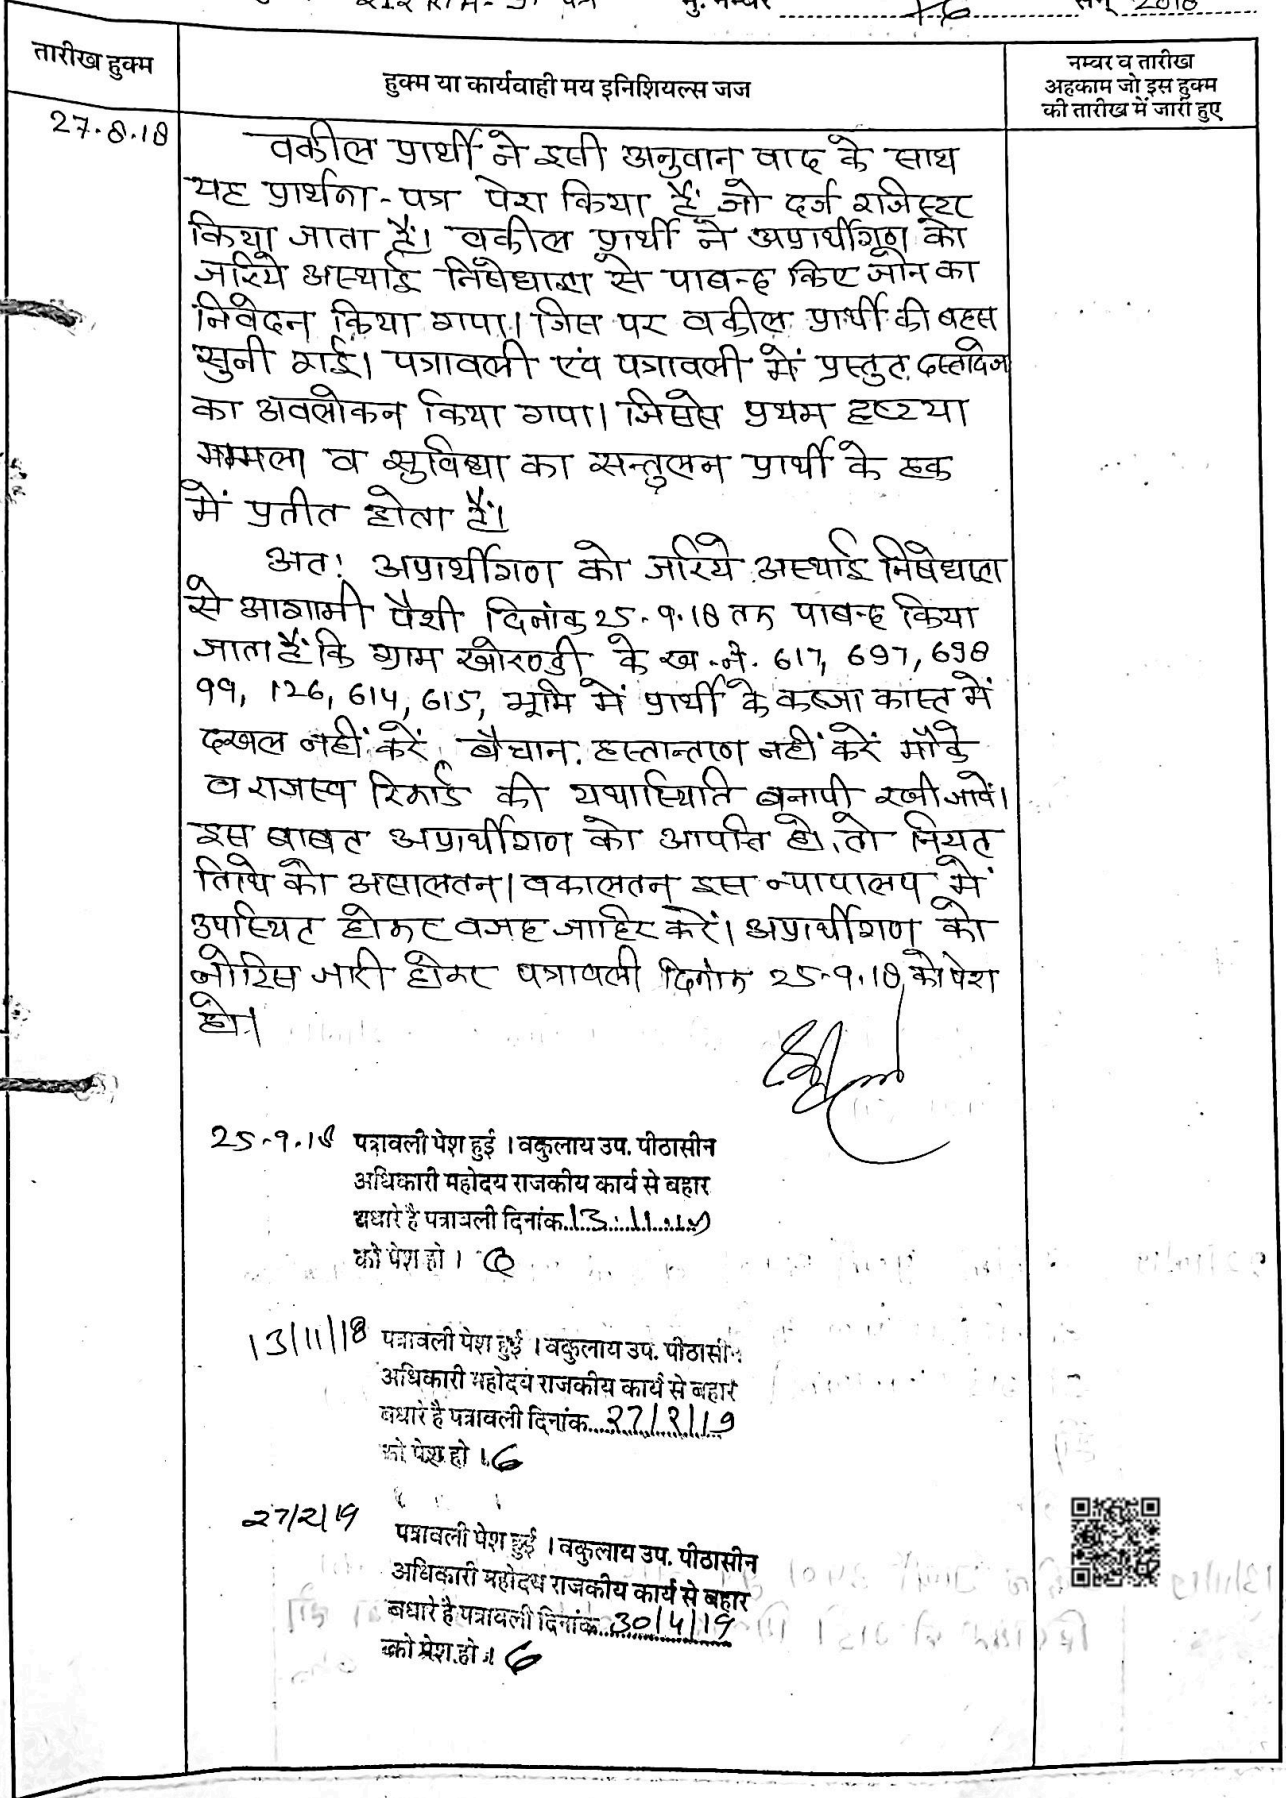 212 RTA- प्रा पत्र मु. नम्बर सन् 2018
तारीख हुक्म
हुक्म या कार्यवाही मय इनिशियल्स जज
नम्बर व तारीख
अहकाम जो इस हुक्म
की तारीख में जारी हुए
27.8.18
वकील प्रार्थी ने इसी अनुवान वाद के साथ
यह प्रार्थना-पत्र पेश किया हैं जो दर्ज रजिस्टर
किया जाता हैं। वकील प्रार्थी ने अप्रार्थीगण को
जरिये अस्थाई निषेधाज्ञा से पाबन्द किए जाने का
निवेदन किया गया। जिस पर वकील प्रार्थी की बहस
सुनी गई। पत्रावली एवं पत्रावली में प्रस्तुत दस्तावेज
का अवलोकन किया गया। जिससे प्रथम दृष्टया
मामला व सुविधा का सन्तुलन प्रार्थी के हक
में प्रतीत होता हैं।
अतः अप्रार्थीगण को जरिये अस्थाई निषेधाज्ञा
से आगामी पैशी दिनांक 25-9-18 तक पाबन्द किया
जाता हैं कि ग्राम खोरण्डी के ख.नं. 617, 697, 698
99, 126, 614, 615, भूमि में प्रार्थी के कब्जा कास्त में
दखल नहीं करें, बैचान, हस्तान्तरण नहीं करें मौके
व राजस्व रिकार्ड की यथास्थिति बनायी रखी जावें।
इस बाबत अप्रार्थीगण को आपत्ति हो, तो नियत
तिथि को असालतन। वकालतन इस न्यायालय में
उपस्थित होकर वजह जाहिर करें। अप्रार्थीगण को
नोटिस जारी होकर पत्रावली दिनांक 25-9-18 को पेश
हो।
25-9-18 पत्रावली पेश हुई । वकुलाय उप. पीठासीन
अधिकारी महोदय राजकीय कार्य से बहार
पधारे है पत्रावली दिनांक 13.11.18
को पेश हो ।
13/11/18 पत्रावली पेश हुई । वकुलाय उप. पीठासीन
अधिकारी महोदय राजकीय कार्य से बहार
पधारे है पत्रावली दिनांक 27/2/19
को पेश हो ।
27/2/19 पत्रावली पेश हुई । वकुलाय उप. पीठासीन
अधिकारी महोदय राजकीय कार्य से बहार
पधारे है पत्रावली दिनांक 30/4/19
को पेश हो ।